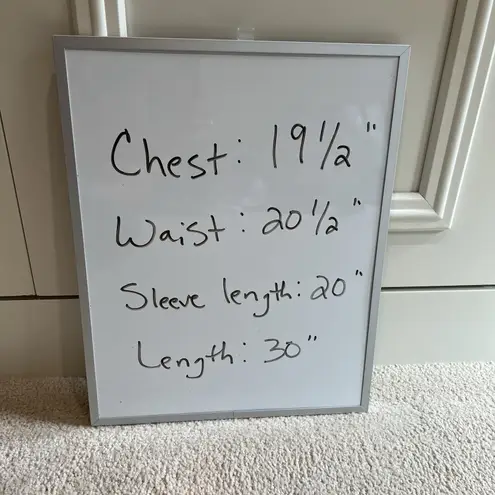 Chest: 19 1/2"
Waist: 20 1/2"
Sleeve length: 20"
Length: 30"